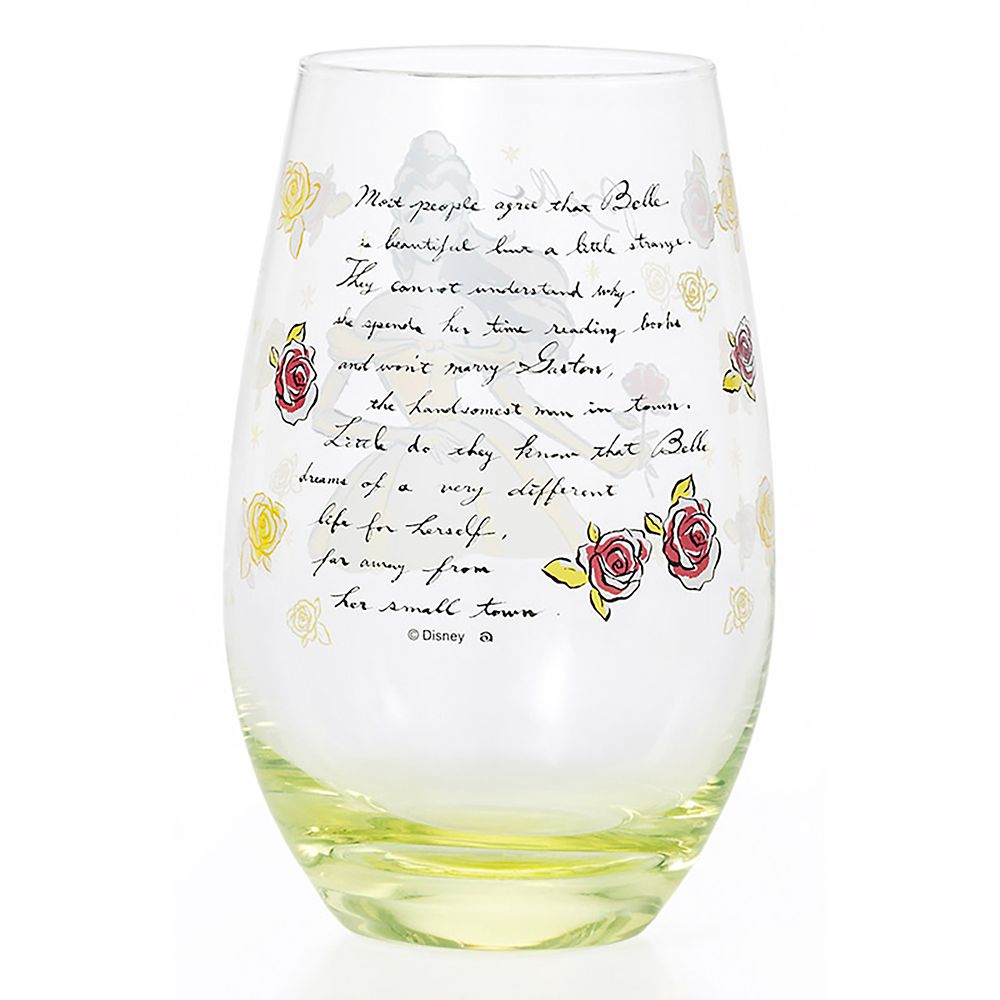 Most people agree that Belle
is beautiful but a little strange.
They cannot understand why
she spends her time reading books
and won't marry Gaston,
the handsomest man in town.
Little do they know that Belle
dreams of a very different
life for herself,
far away from
her small town.
© Disney